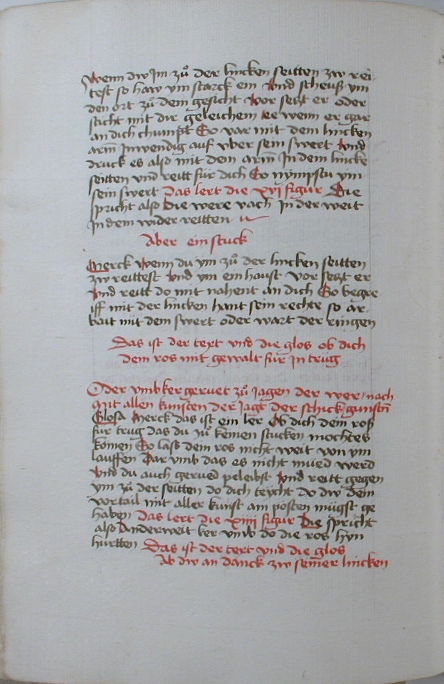 Wenn dw Im zů der lincken seitten zw rei
test so haw ym starck ein Vnd scheuß ym
den ort zů dem gesicht Vor setzt er oder
sticht mit dir geleichen ee wenn er gar
an dich chumpt So var mit dem lincken
arm Inwendig auf vber sein swert Vnd
druck es also mit dem arm In dem lincke
seitten vnd reitt für dich So nympstu ym
sein swert Das lert die xvj figur Die
spricht also Die were vach In der weit
In dem wider reitten
Aber ein stuck
Merck Wenn du ym zů der lincken seitten
zw reittest Vnd ym ein haust vor setzt er
Vnd reitt do mit nahent an dich So begre
iff mit der lincken hant sein rechte so ar
bait mit dem swert oder wart der ringen
Das ist der text vnd die glos ob dich
dem ros mit gewalt für In trug
Oder vmbker geruet zů Jagen der wer nach
Mit allen kunsten der Jagt der schick gunstn
Glosa Merck das ist ein ler Ob dich dein roß
für trug das du zů keinen stucken mochtes
komen So lasß dem ros nicht weit von ym
lauffen Dar vmb das es nicht mued werd
Vnd du auch gerued peleibst Vnd reitt gegen
ym zů der seitten do dich teycht do dw dein
vortail mit aller kunst am posten mügst ge
haben Das lert die xiiij figur Die spricht
also Anderweit ker vmb do die ros hyn
hurtten Das ist der text vnd die glos
Ab dw an danck zw seiner lincken